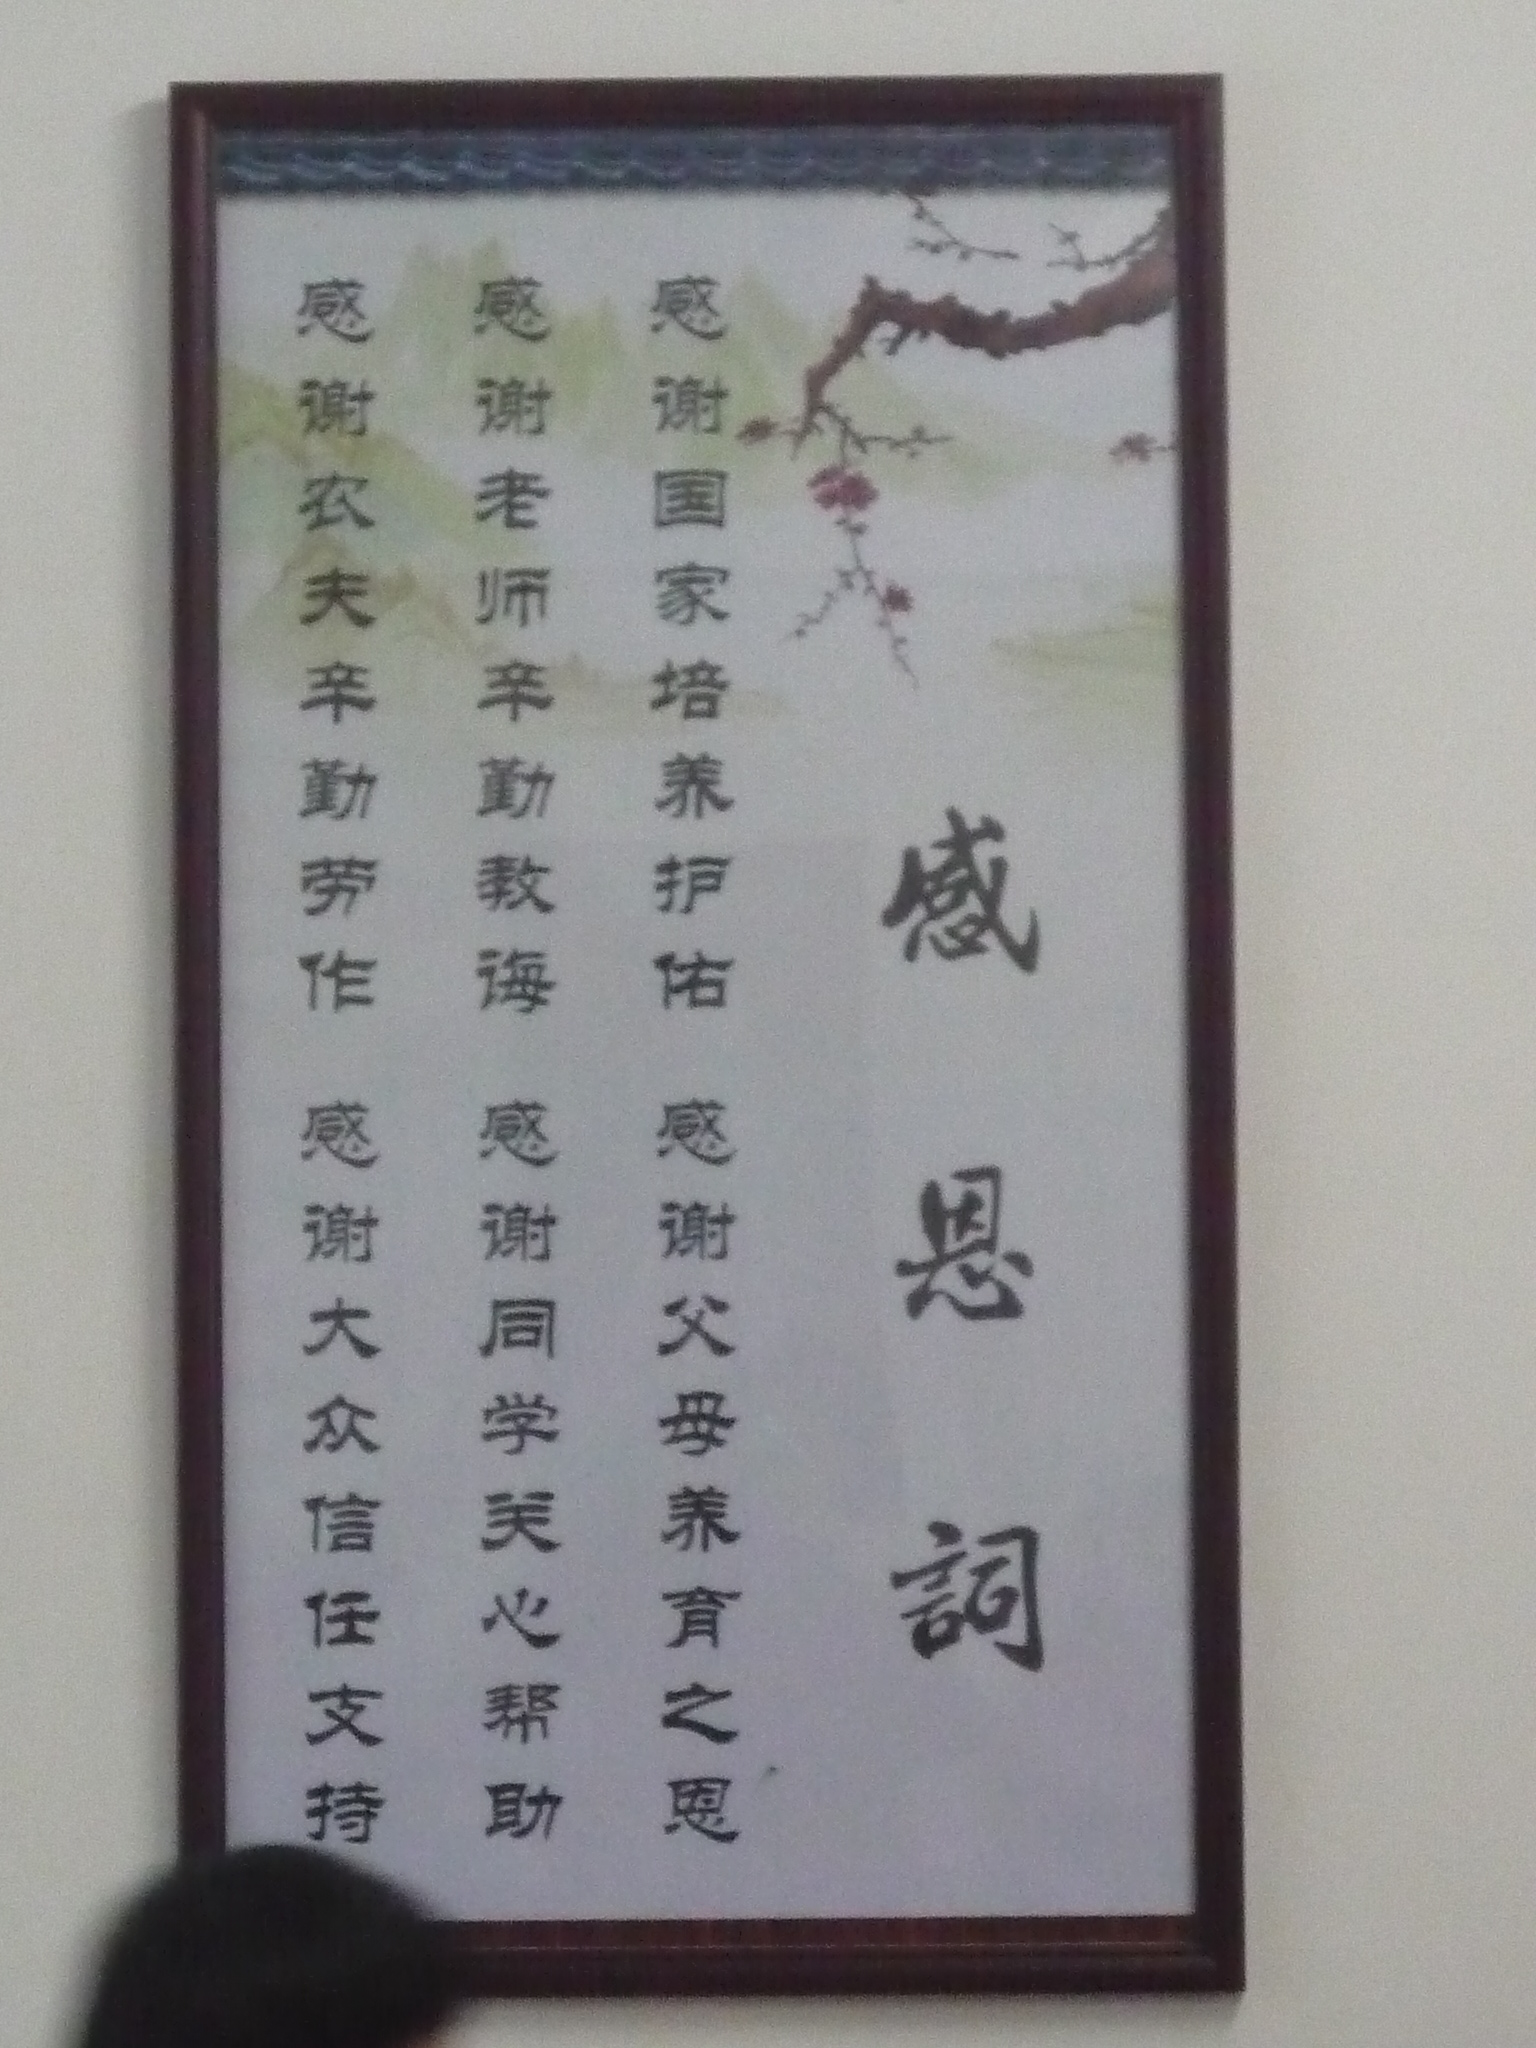 感恩詞
感谢国家培养护佑 感谢父母养育之恩
感谢老师辛勤教诲 感谢同学关心帮助
感谢农夫辛勤劳作 感谢大众信任支持